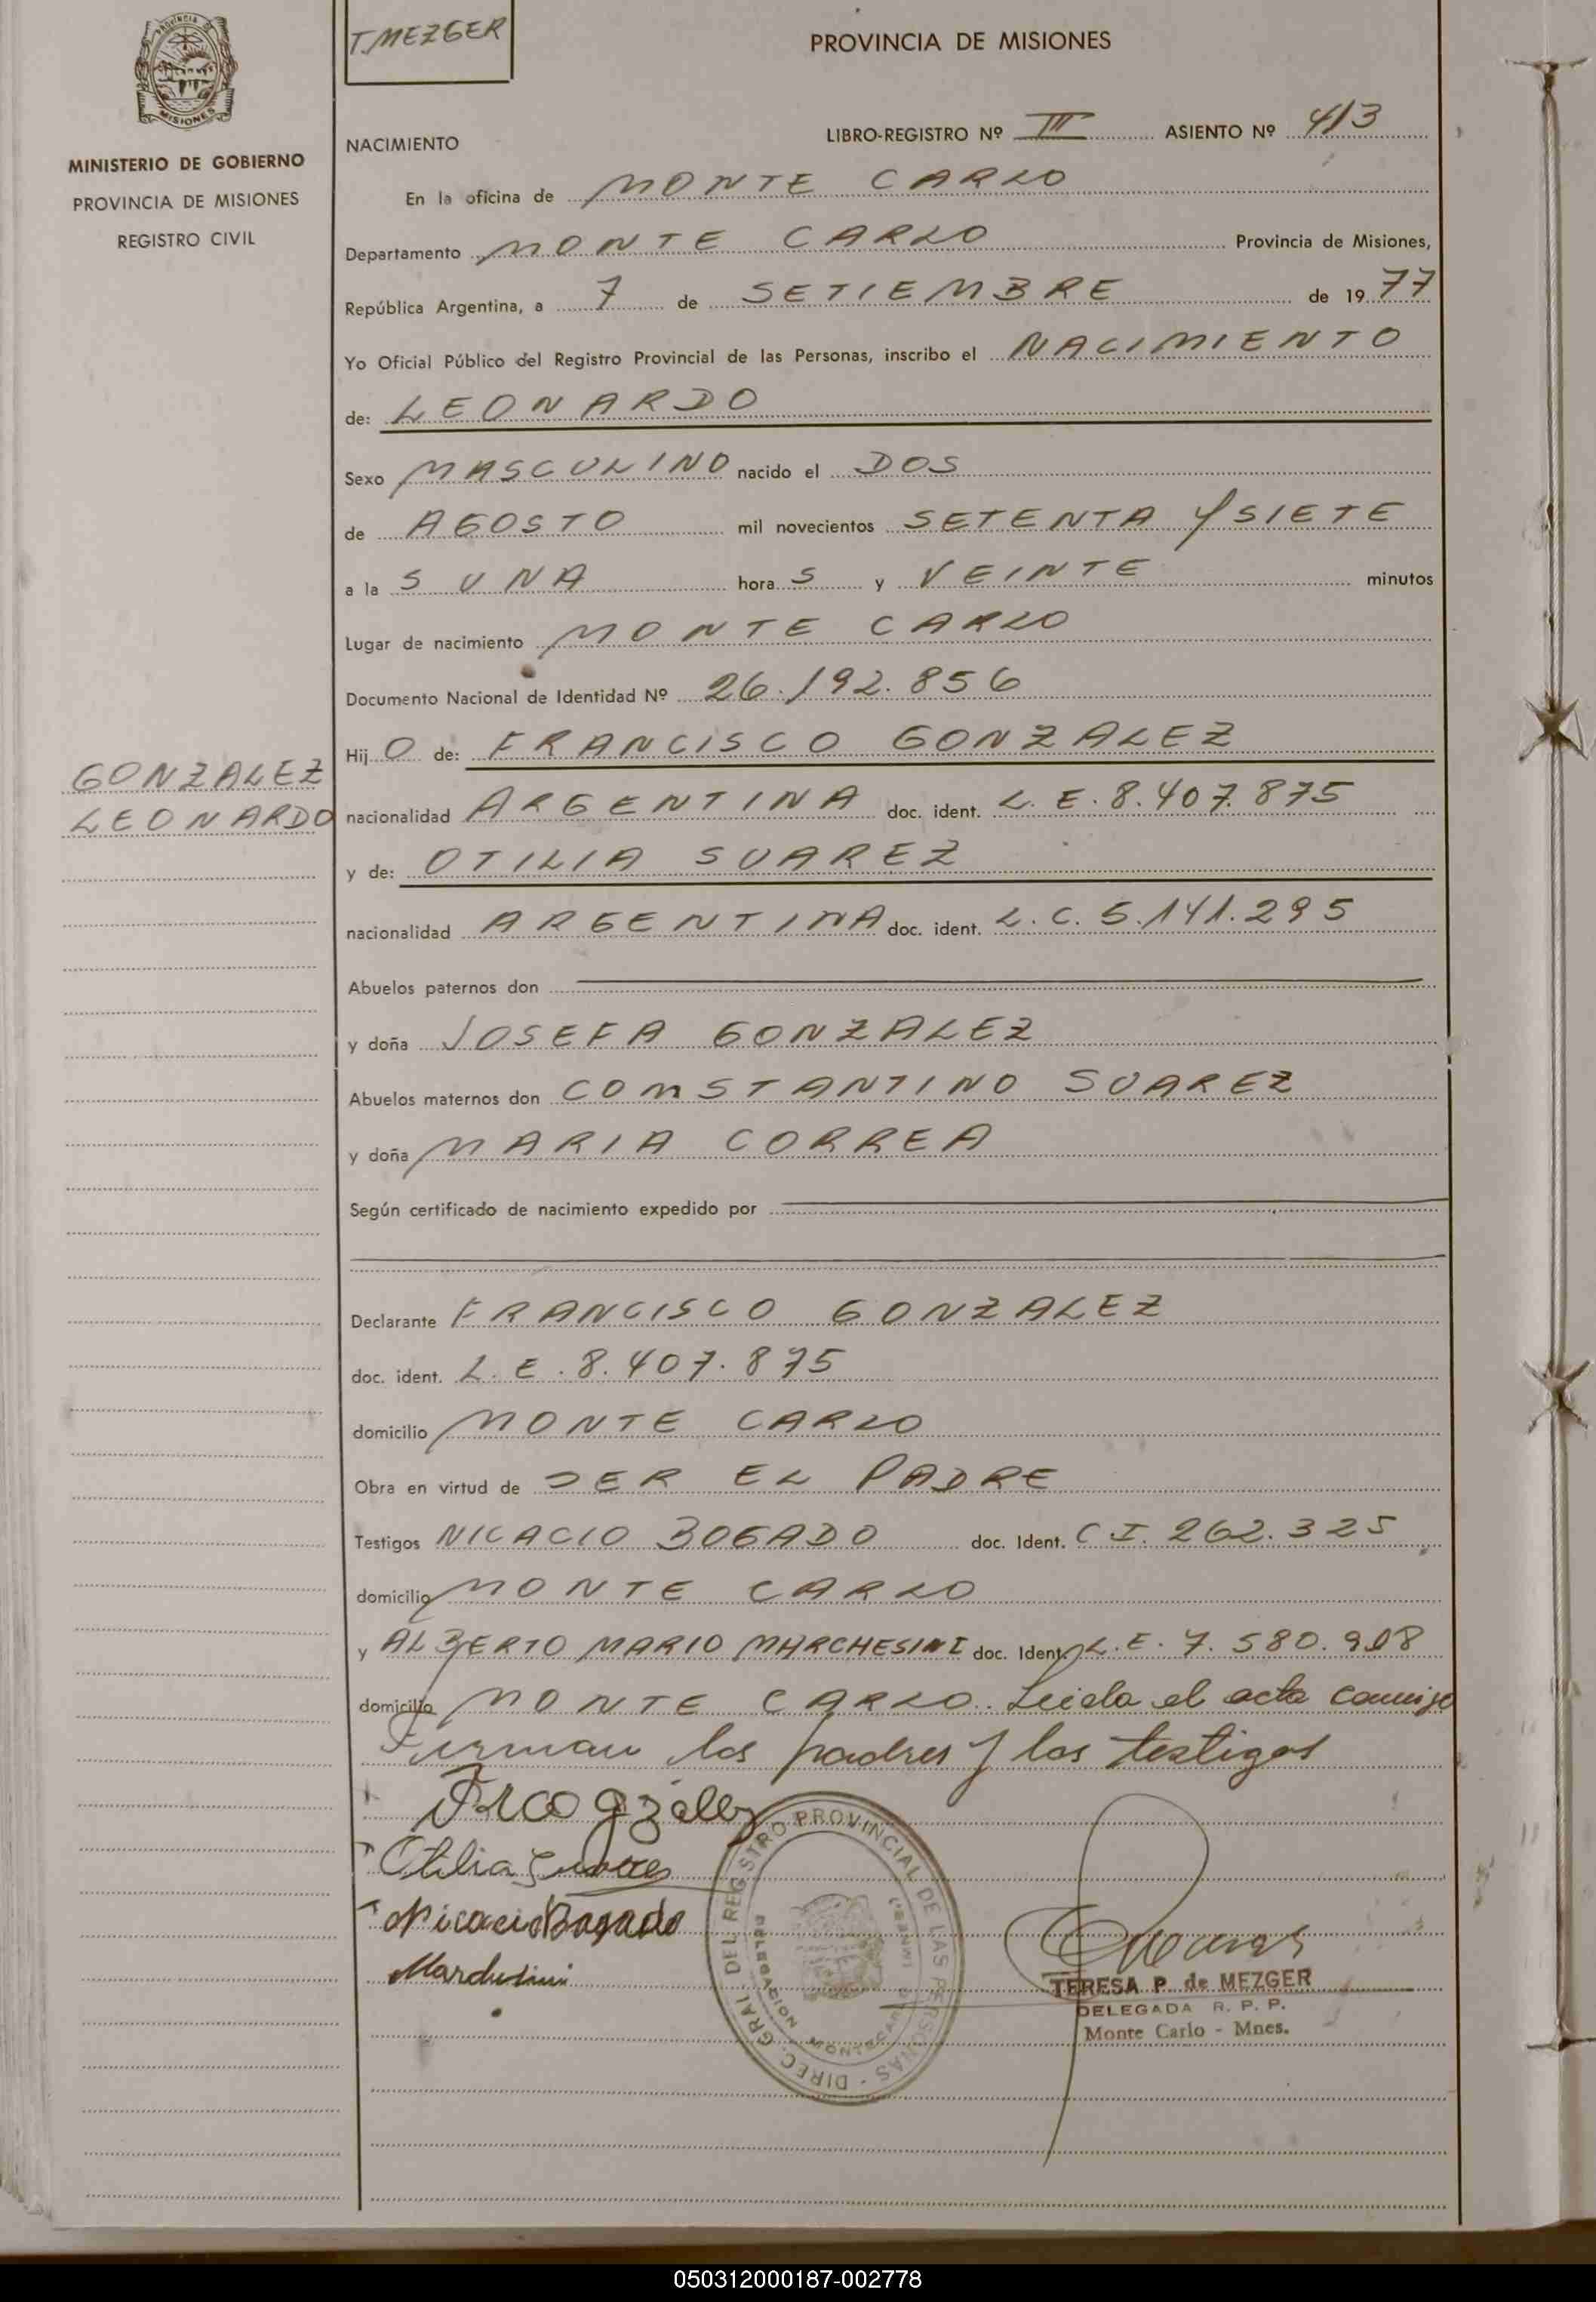 T. MEZGER
PROVINCIA DE MISIONES
MISIONES
MINISTERIO DE GOBIERNO
PROVINCIA DE MISIONES
REGISTRO CIVIL
NACIMIENTO
LIBRO-REGISTRO Nº III ASIENTO Nº 413
En la oficina de MONTE CARLO
Departamento MONTE CARLO Provincia de Misiones,
República Argentina, a 7 de SETIEMBRE de 1977
Yo Oficial Público del Registro Provincial de las Personas, inscribo el NACIMIENTO
de: LEONARDO
Sexo MASCULINO nacido el DOS
de AGOSTO mil novecientos SETENTA Y SIETE
a la S UNA hora S y VEINTE minutos
Lugar de nacimiento MONTE CARLO
Documento Nacional de Identidad Nº 26.192.856
Hij O de: FRANCISCO GONZALEZ
GONZALEZ
LEONARDO
nacionalidad ARGENTINA doc. ident. L. E. 8.407.875
y de: OTILIA SUAREZ
nacionalidad ARGENTINA doc. ident. L. C. 5.141.295
Abuelos paternos don
y doña JOSEFA GONZALEZ
Abuelos maternos don COMSTANTINO SUAREZ
y doña MARIA CORREA
Según certificado de nacimiento expedido por
Declarante FRANCISCO GONZALEZ
doc. ident. L. E. 8.407.875
domicilio MONTE CARLO
Obra en virtud de SER EL PADRE
Testigos NICACIO BOGADO doc. Ident. C I. 262.325
domicilio MONTE CARLO
y ALBERTO MARIO MARCHESINI doc. Ident. L. E. 7.580.908
domicilio MONTE CARLO. Leida el acta conmigo
Firman los padres y los testigos
Frco Gzalez
Otilia Suarez
Nicacio Bogado
Marchesini
DIREC. GRAL. DEL REGISTRO PROVINCIAL DE LAS PERSONAS
DELEGACION MONTECARLO
TERESA P. de MEZGER
DELEGADA R. P. P.
Monte Carlo - Mnes.
050312000187-002778